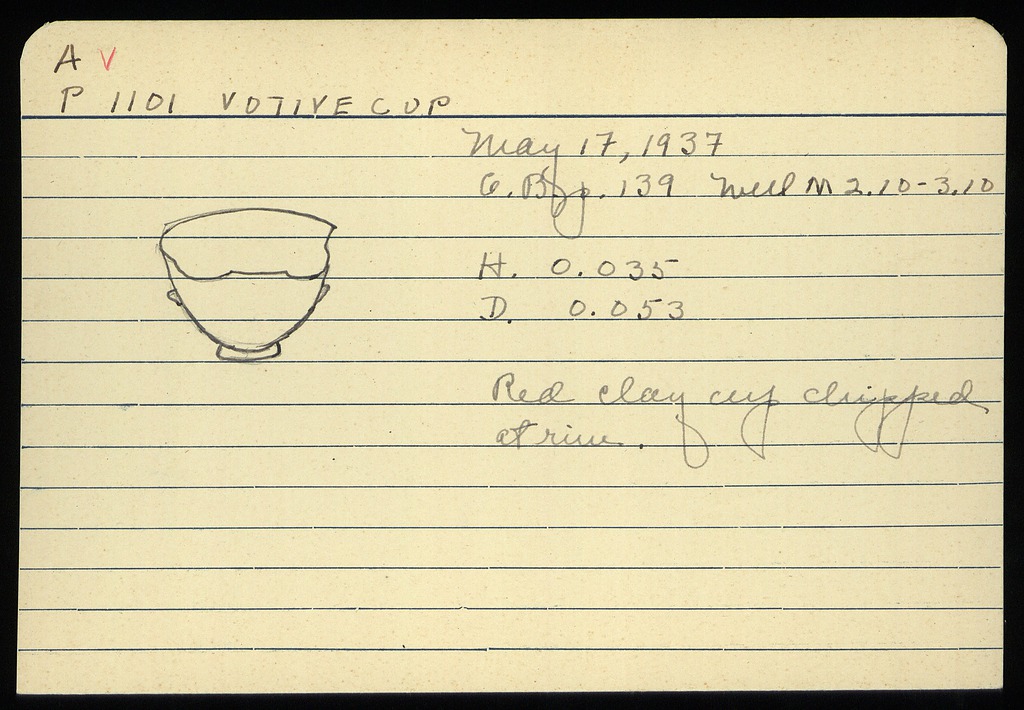 A V
P 1101 VOTIVE CUP
May 17, 1937
G. B p. 139 Well M 2.10-3.10
H. 0.035
D. 0.053
Red clay cup chipped
at rim.